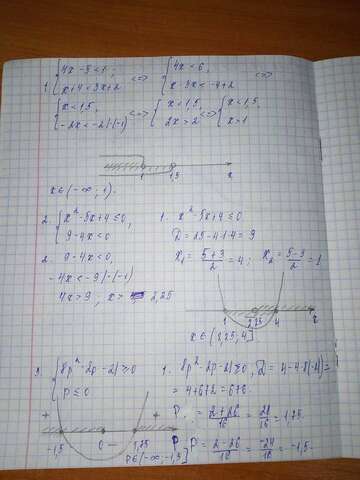 1. {4x-3<1; <=> {4x<6, <=>
{x+4<3x+2 {x-3x<-4+2
{x<1,5, <=> {x<1,5, <=> {x<1,5,
{-2x<-2 |·(-1) {2x>2 {x>1
1 1,5 x
x∈(-∞; 1).
2. {x²-5x+4≤0, 1. x²-5x+4≤0
{9-4x<0 D=25-4·1·4=9
2. 9-4x<0 x₁=(5+3)/2=4; x₂=(5-3)/2=1
-4x<-9 |·(-1)
4x>9, x> 2,25
1 2,25 4 x
x∈(2,25; 4]
3. {8p²-2p-21≥0 1. 8p²-2p-21≥0, D=4-4·8(-21)=
{p≤0 =4+672=676.
+ - + P₁=(2+26)/16=28/16=1,75.
-1,5 0 1,75 P P=(2-26)/16=-24/16=-1,5.
P∈(-∞; -1,5]